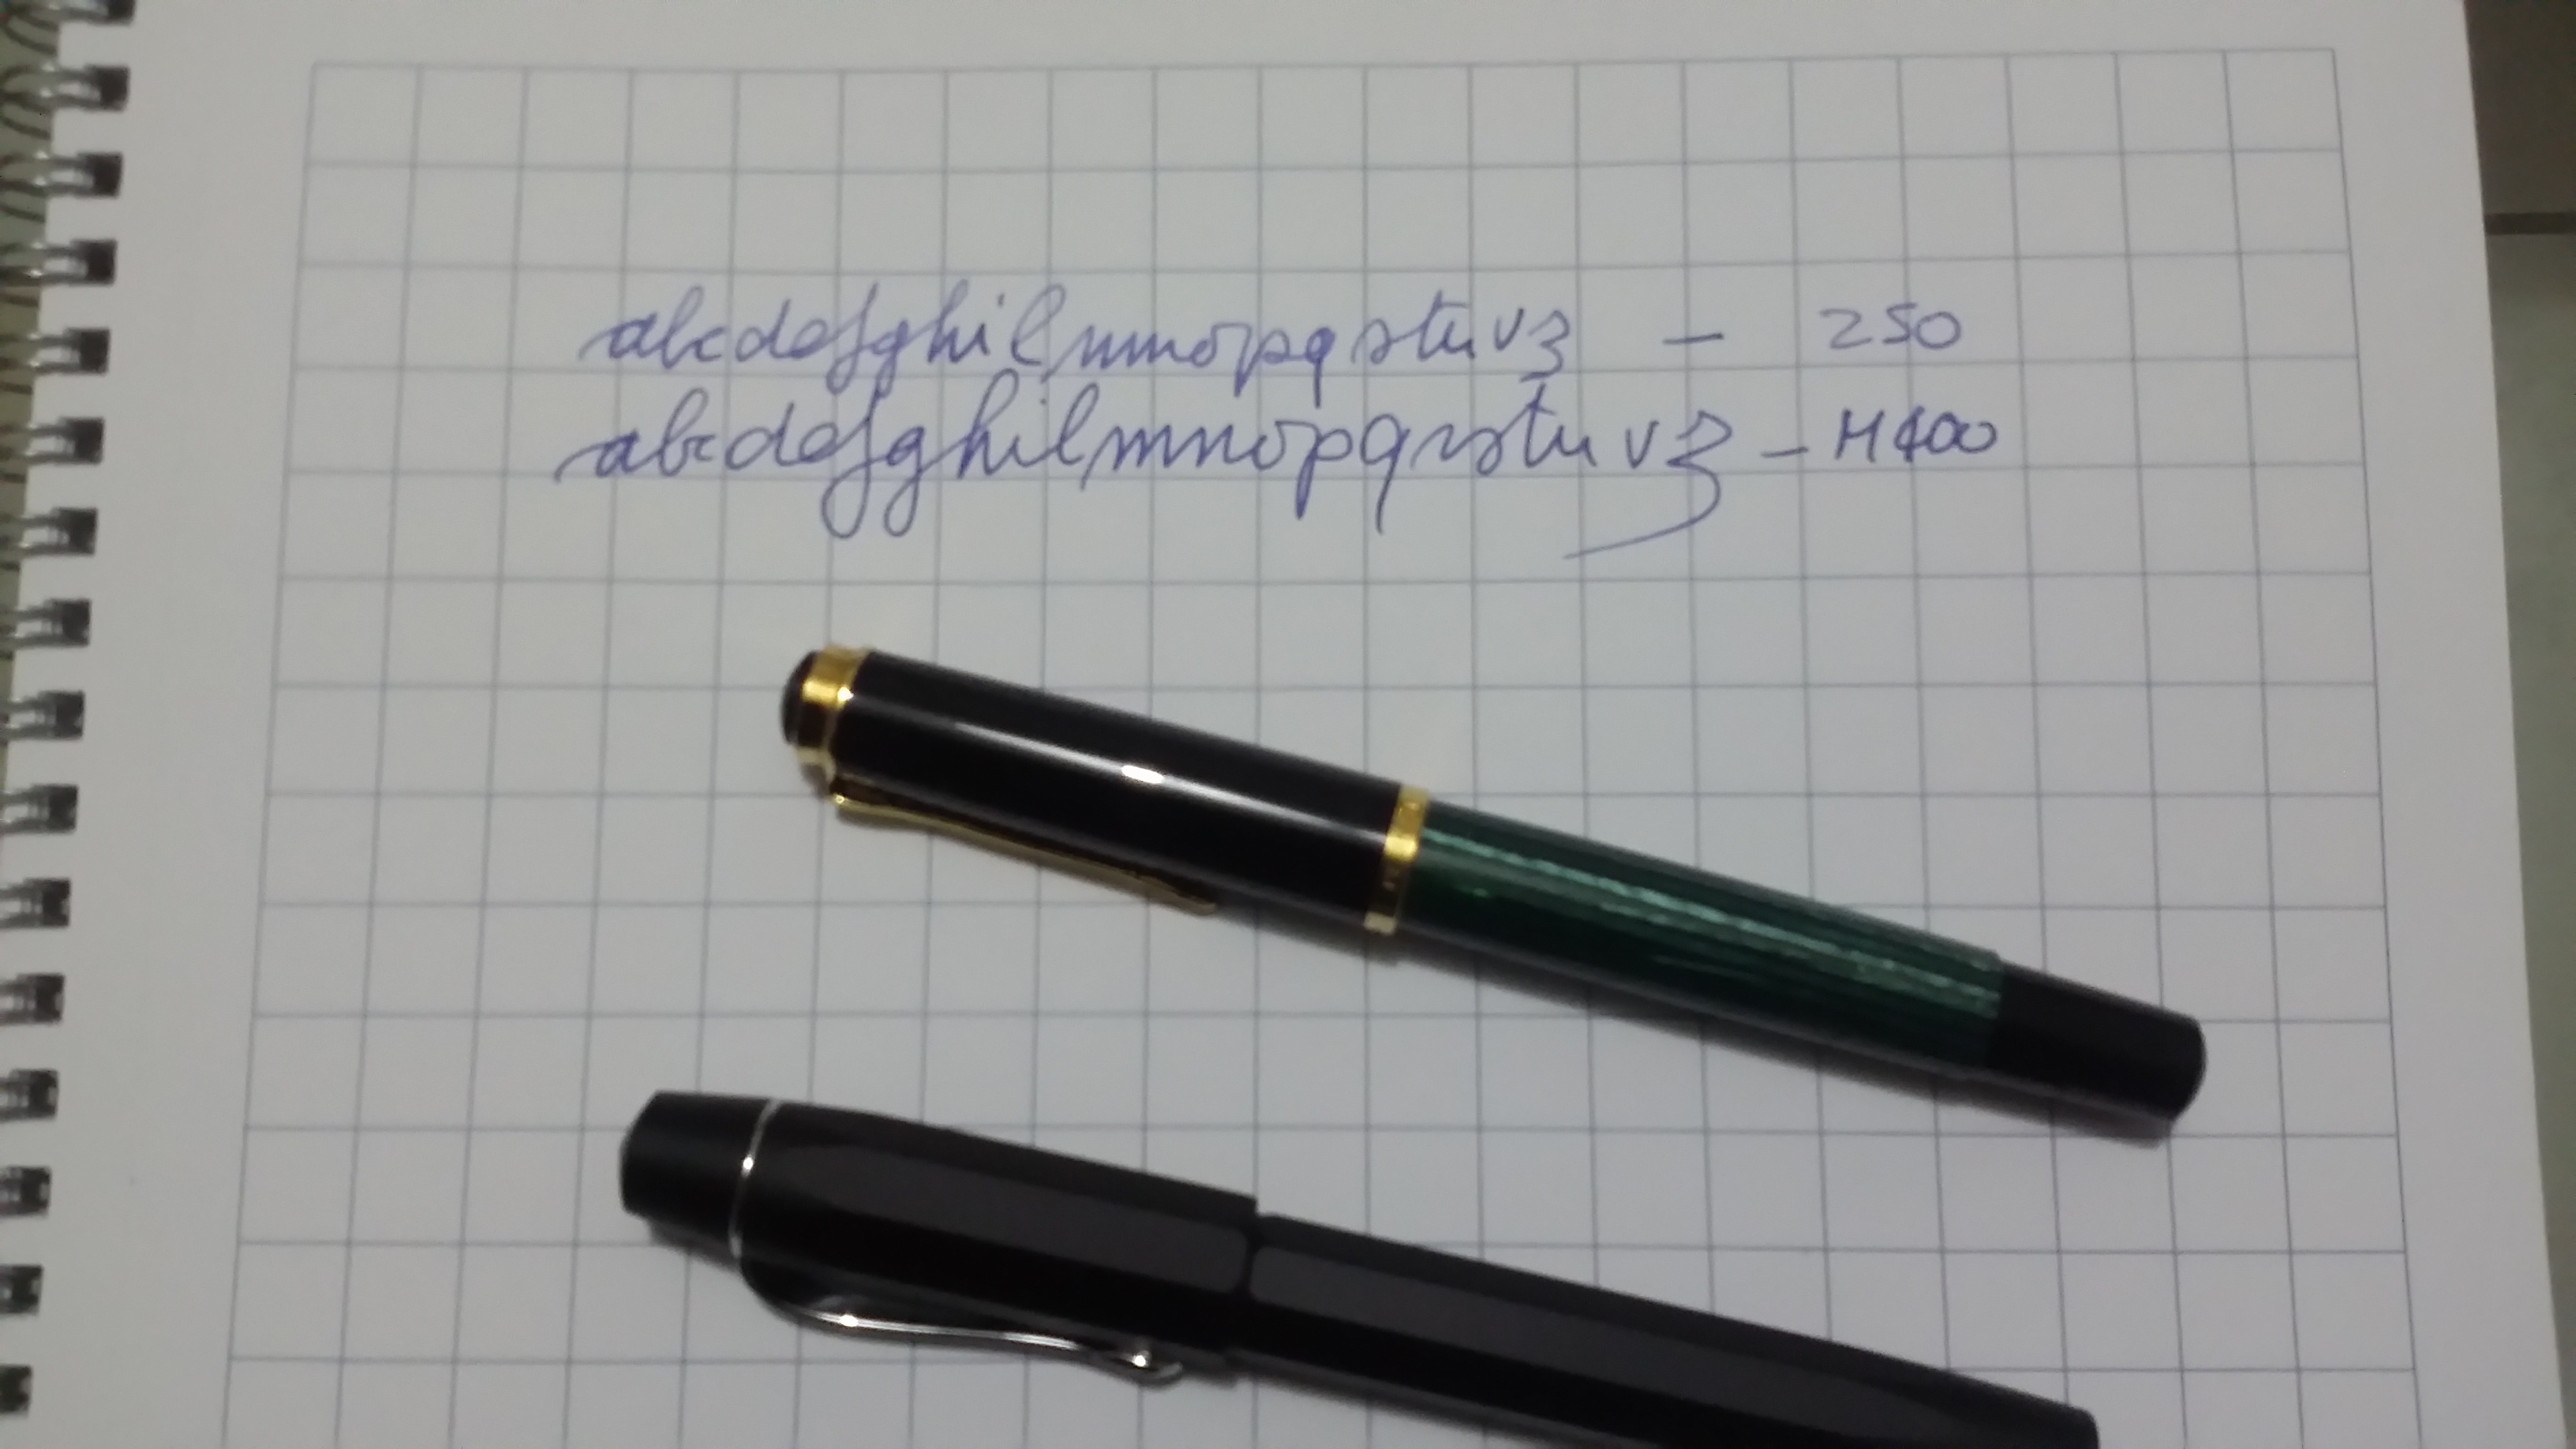 abcdefghilmnopqrstuvz - 250
abcdefghilmnopqrstuvz - M400